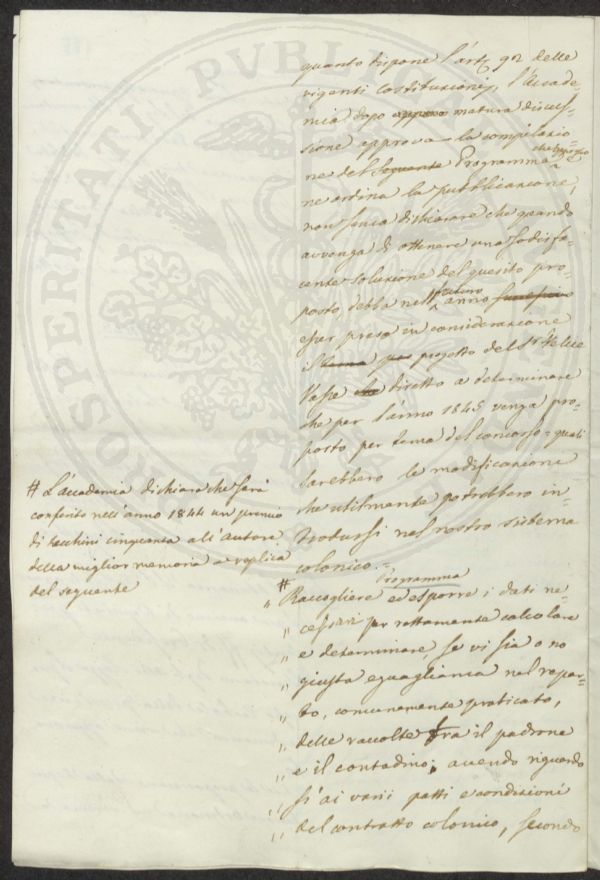 quanto dispone l'art. 92 delle
vigenti Costituzioni, l'Accade-
mia dopo matura discus-
sione approva la compilazio-
ne del Seguente Programma che
ne ordina la pubblicazione,
non senza dichiarare che quando
avvenga di ottenere una sodisfa-
cente soluzione del quesito pro-
posto, debba nell' futuro anno
esser preso in considerazione
il progetto del Sr.
diretto a determinare
che per l'anno 1845 venga pro-
posto per tema del concorso = quali
sarebbero le modificazioni
che utilmente potrebbero in-
trodursi nel nostro sistema
colonico. =
# L'accademia dichiara che sarà
conferito nell'anno 1844 un premio
di zecchini cinquanta all'autore
della miglior memoria a replica
del seguente
Programma
# „ Raccogliere ed esporre i dati ne-
„ cessari per rettamente calcolare
„ e determinare, se vi sia o no
„ giusta eguaglianza nel repar-
„ to, comunemente praticato,
„ delle raccolte fra il padrone
„ e il contadino; avendo riguardo
„ sì ai varii patti e condizioni
„ del contratto colonico, secondo
PROSPERITATI PUBLICAE